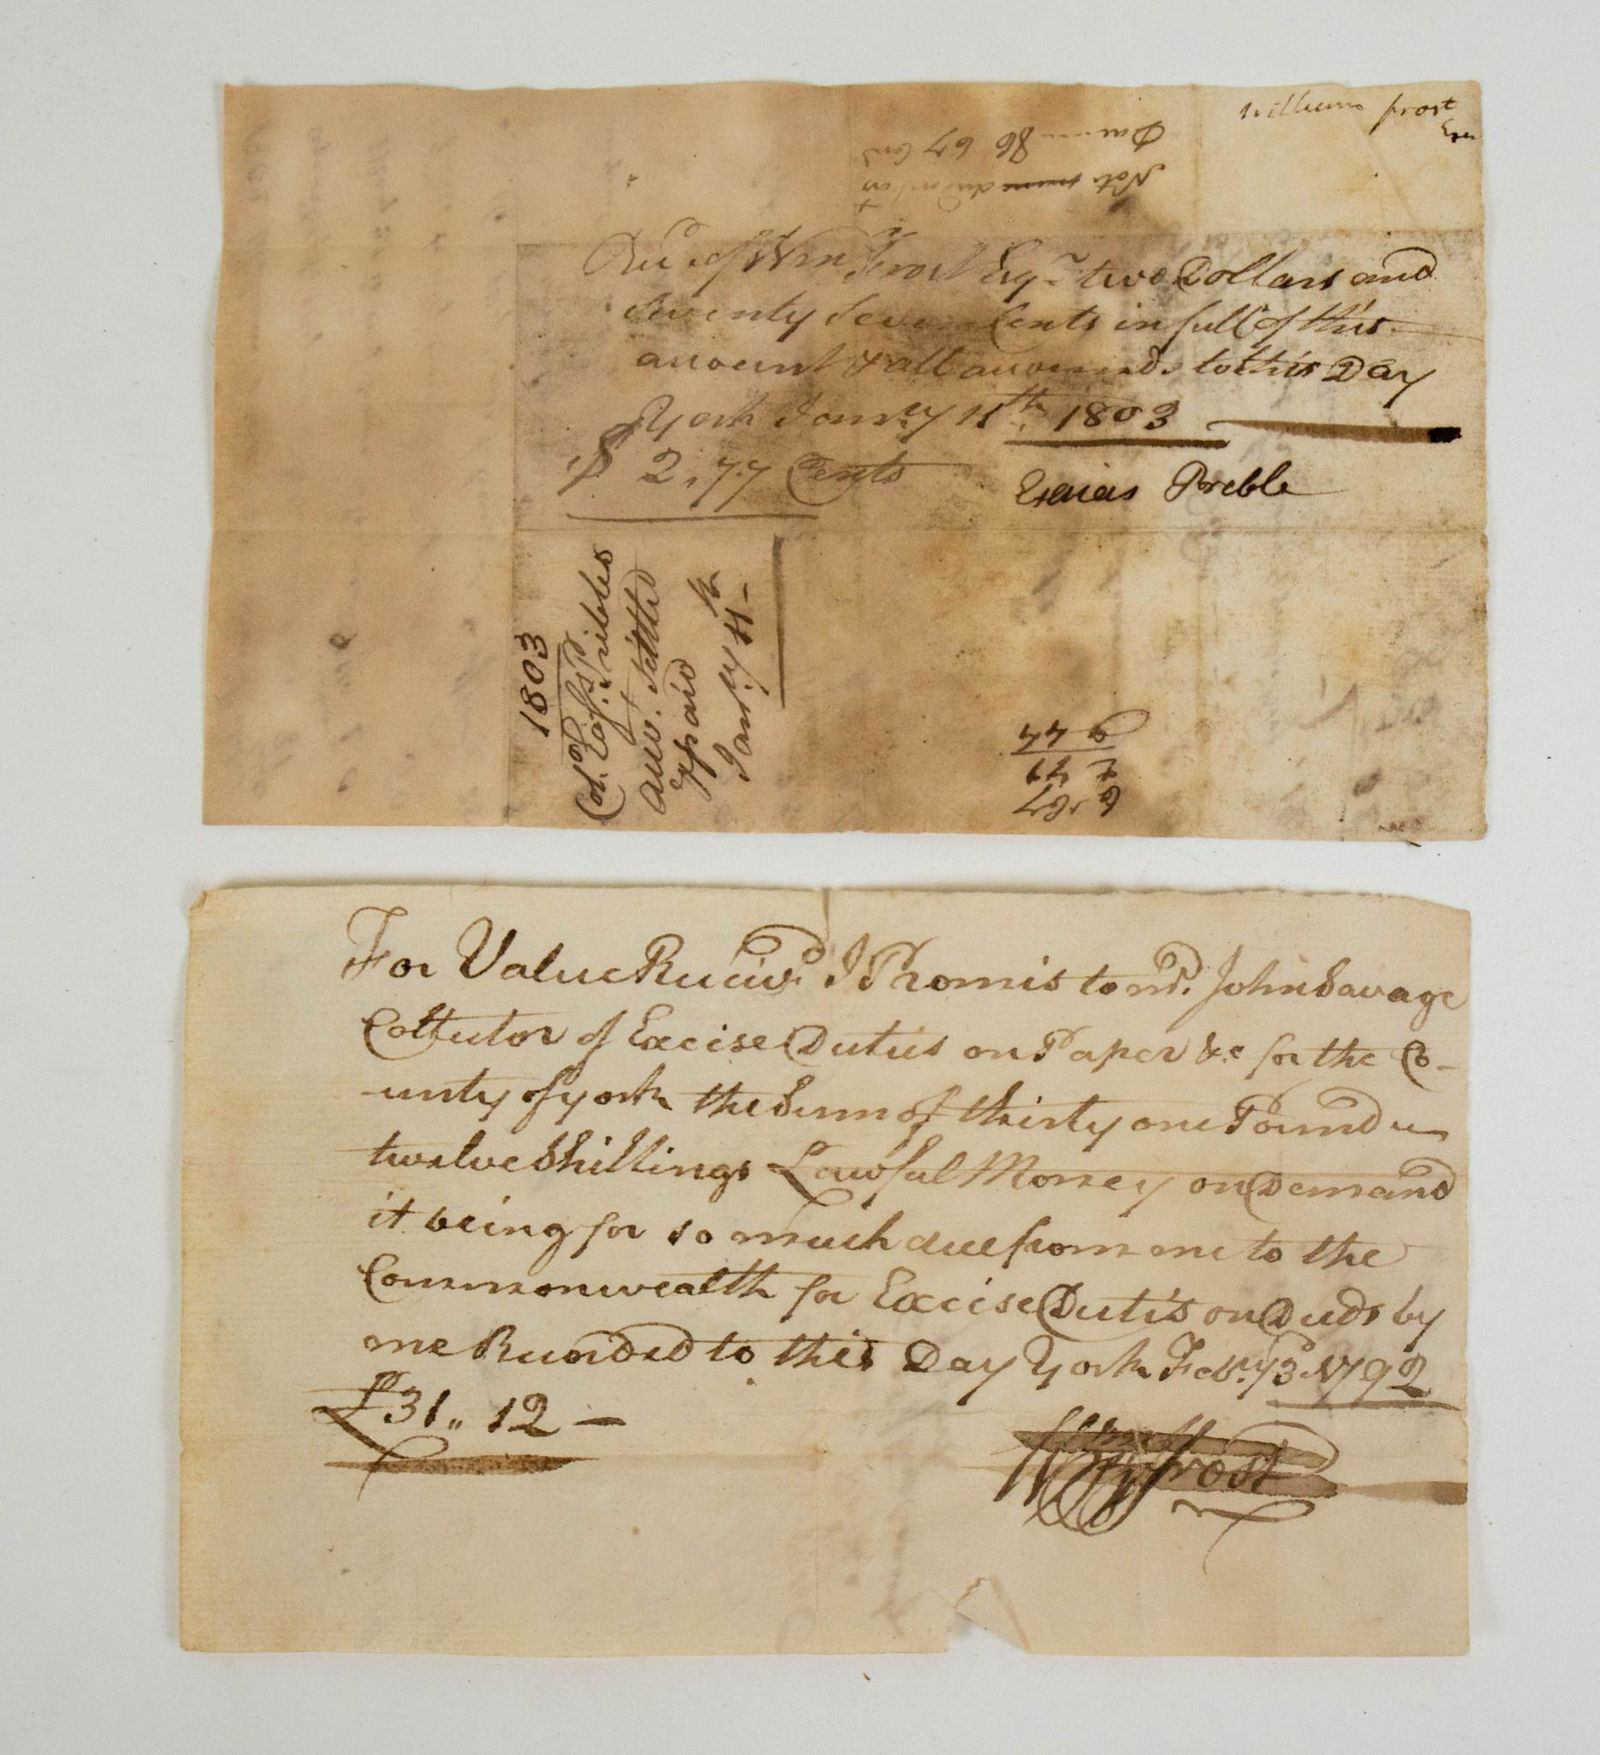 William frost
Esqr
Note
Due 86 67 Cents
Recd of Wm Frost Esqr two Dollars and
Seventy Seven Cents in full of this
account & all accounts to this Day
York Janry 11th 1803
$ 2,77 Cents
Esaias Preble
1803
Col. Esas Pribles
acco. Settled
& paid
Janry 11th -
6,67
44
For Value Receivd I Promis to mr. John Savage
Collector of Excise Duties on Paper &c for the Co-
unty of york the Sum of thirty one Pounds
twelve Shillings Lawful Money on Demand
it being for so much due from me to the
Commonwealth for Excise Dutis on Deeds by
me Recorded to this Day York Febry 3d 1792
£31,, 12 -
Wm Frost